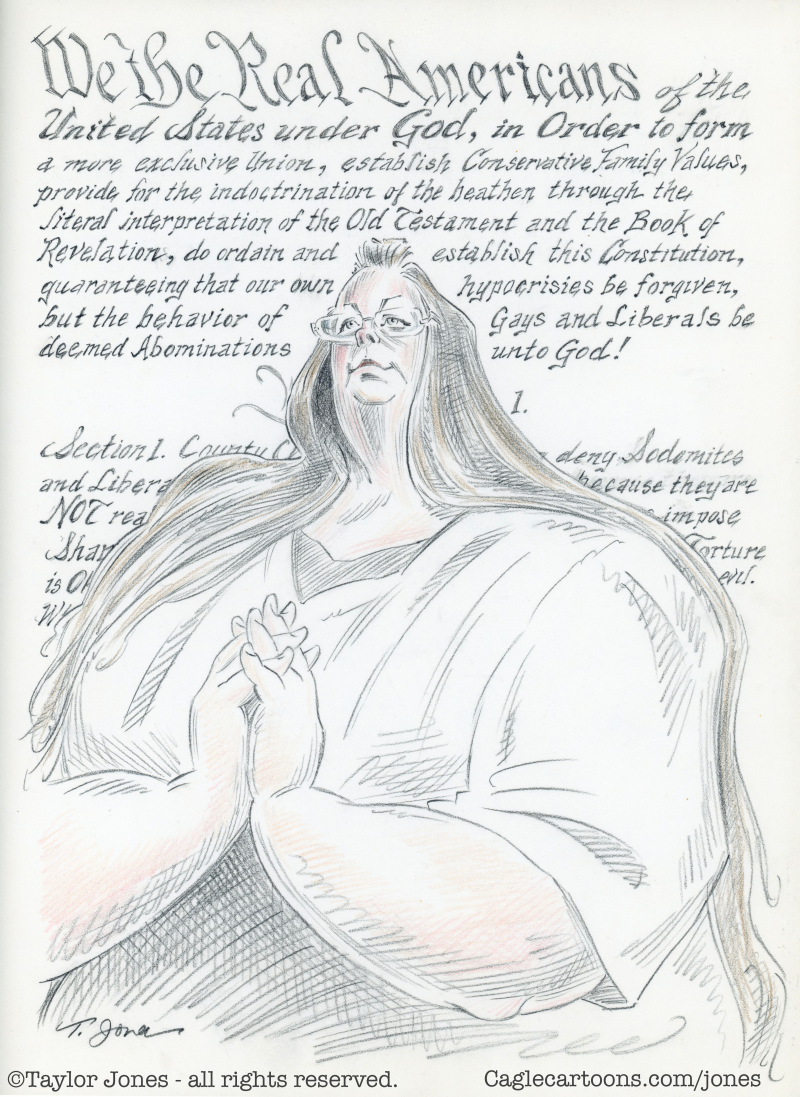 We the Real Americans of the
United States under God, in Order to form
a more exclusive Union, establish Conservative Family Values,
provide for the indoctrination of the heathen through the
literal interpretation of the Old Testament and the Book of
Revelation, do ordain and establish this Constitution,
guaranteeing that our own hypocrisies be forgiven,
but the behavior of Gays and Liberals be
deemed Abominations unto God!
1.
Section 1. County deny Sodomites
and because they are
NOT impose
Torture
is evil.
T. Jones
©Taylor Jones - all rights reserved. Caglecartoons.com/jones